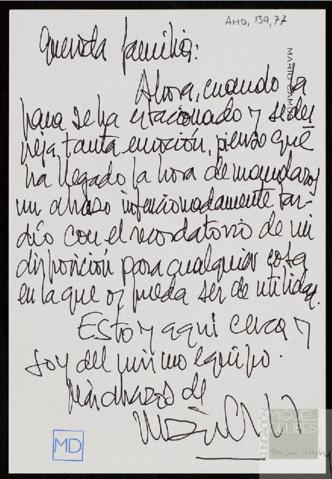 AMD, 139, 77
Querida familia:
Ahora, cuando la
pana se ha estacionado y se des
peja, tanta emoción, pienso que
ha llegado la hora de mandaros
un abrazo intencionadamente tar-
dío con el recordatorio de mi
disposición para cualquier cosa
en la que os pueda ser de utilidad.
Estoy aquí cerca y
soy del mismo equipo.
Más abrazos de
MARIO CAM
MD
FUNDACIÓN
MIGUEL
DELIBES